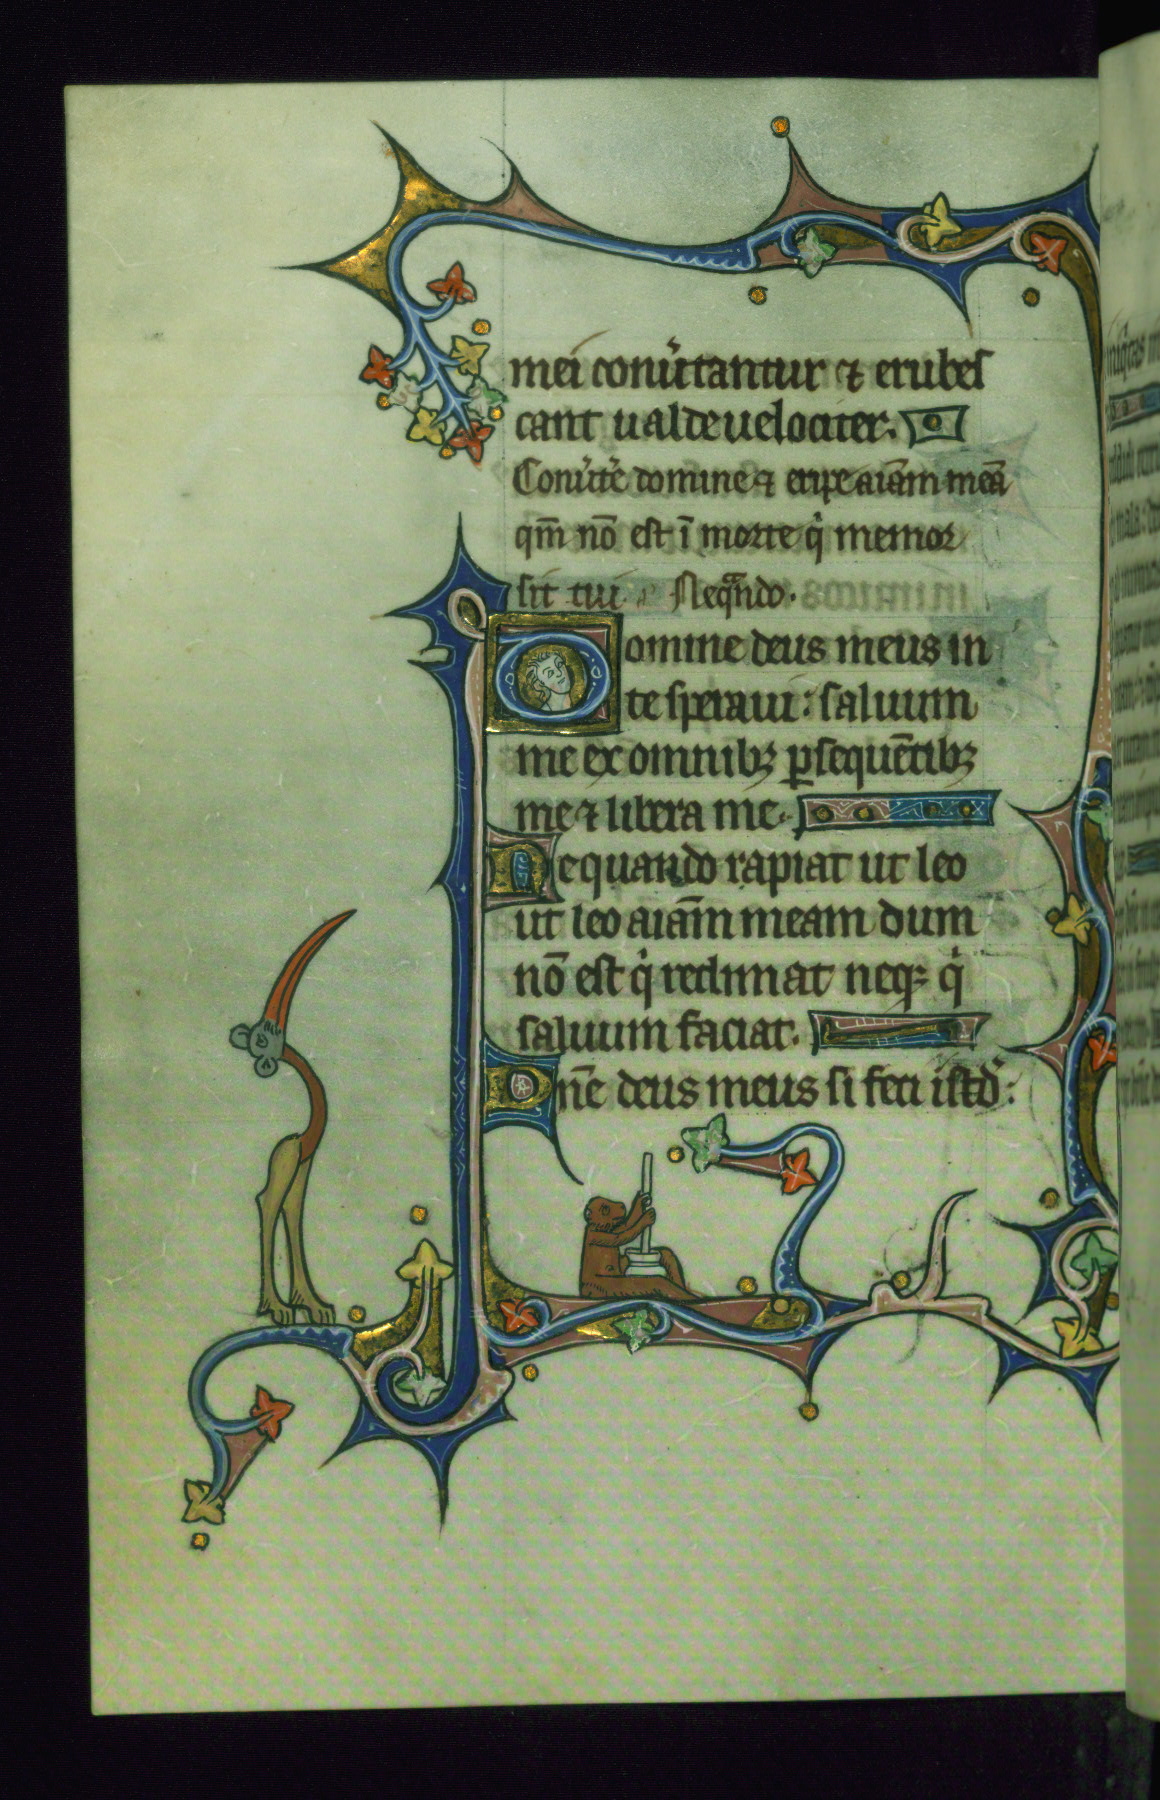 mei conu̾tantur ⁊ erubes
cant ualde uelociter.
Conu̾te̾ domine ⁊ eripe aīam meā
qm̄ nō est ī morte qͥ memor
sit tui Neqᷓndo.
Domine deus meus in
te speraui: saluum
me ex omnibꝫ ꝑsequētibꝫ
me ⁊ libera me.
Nequando rapiat ut leo
ut leo aīam meam dum
nō est qͥ redimat neqꝫ qͥ
saluum faciat.
Dn̄e deus meus si feci istd̾: